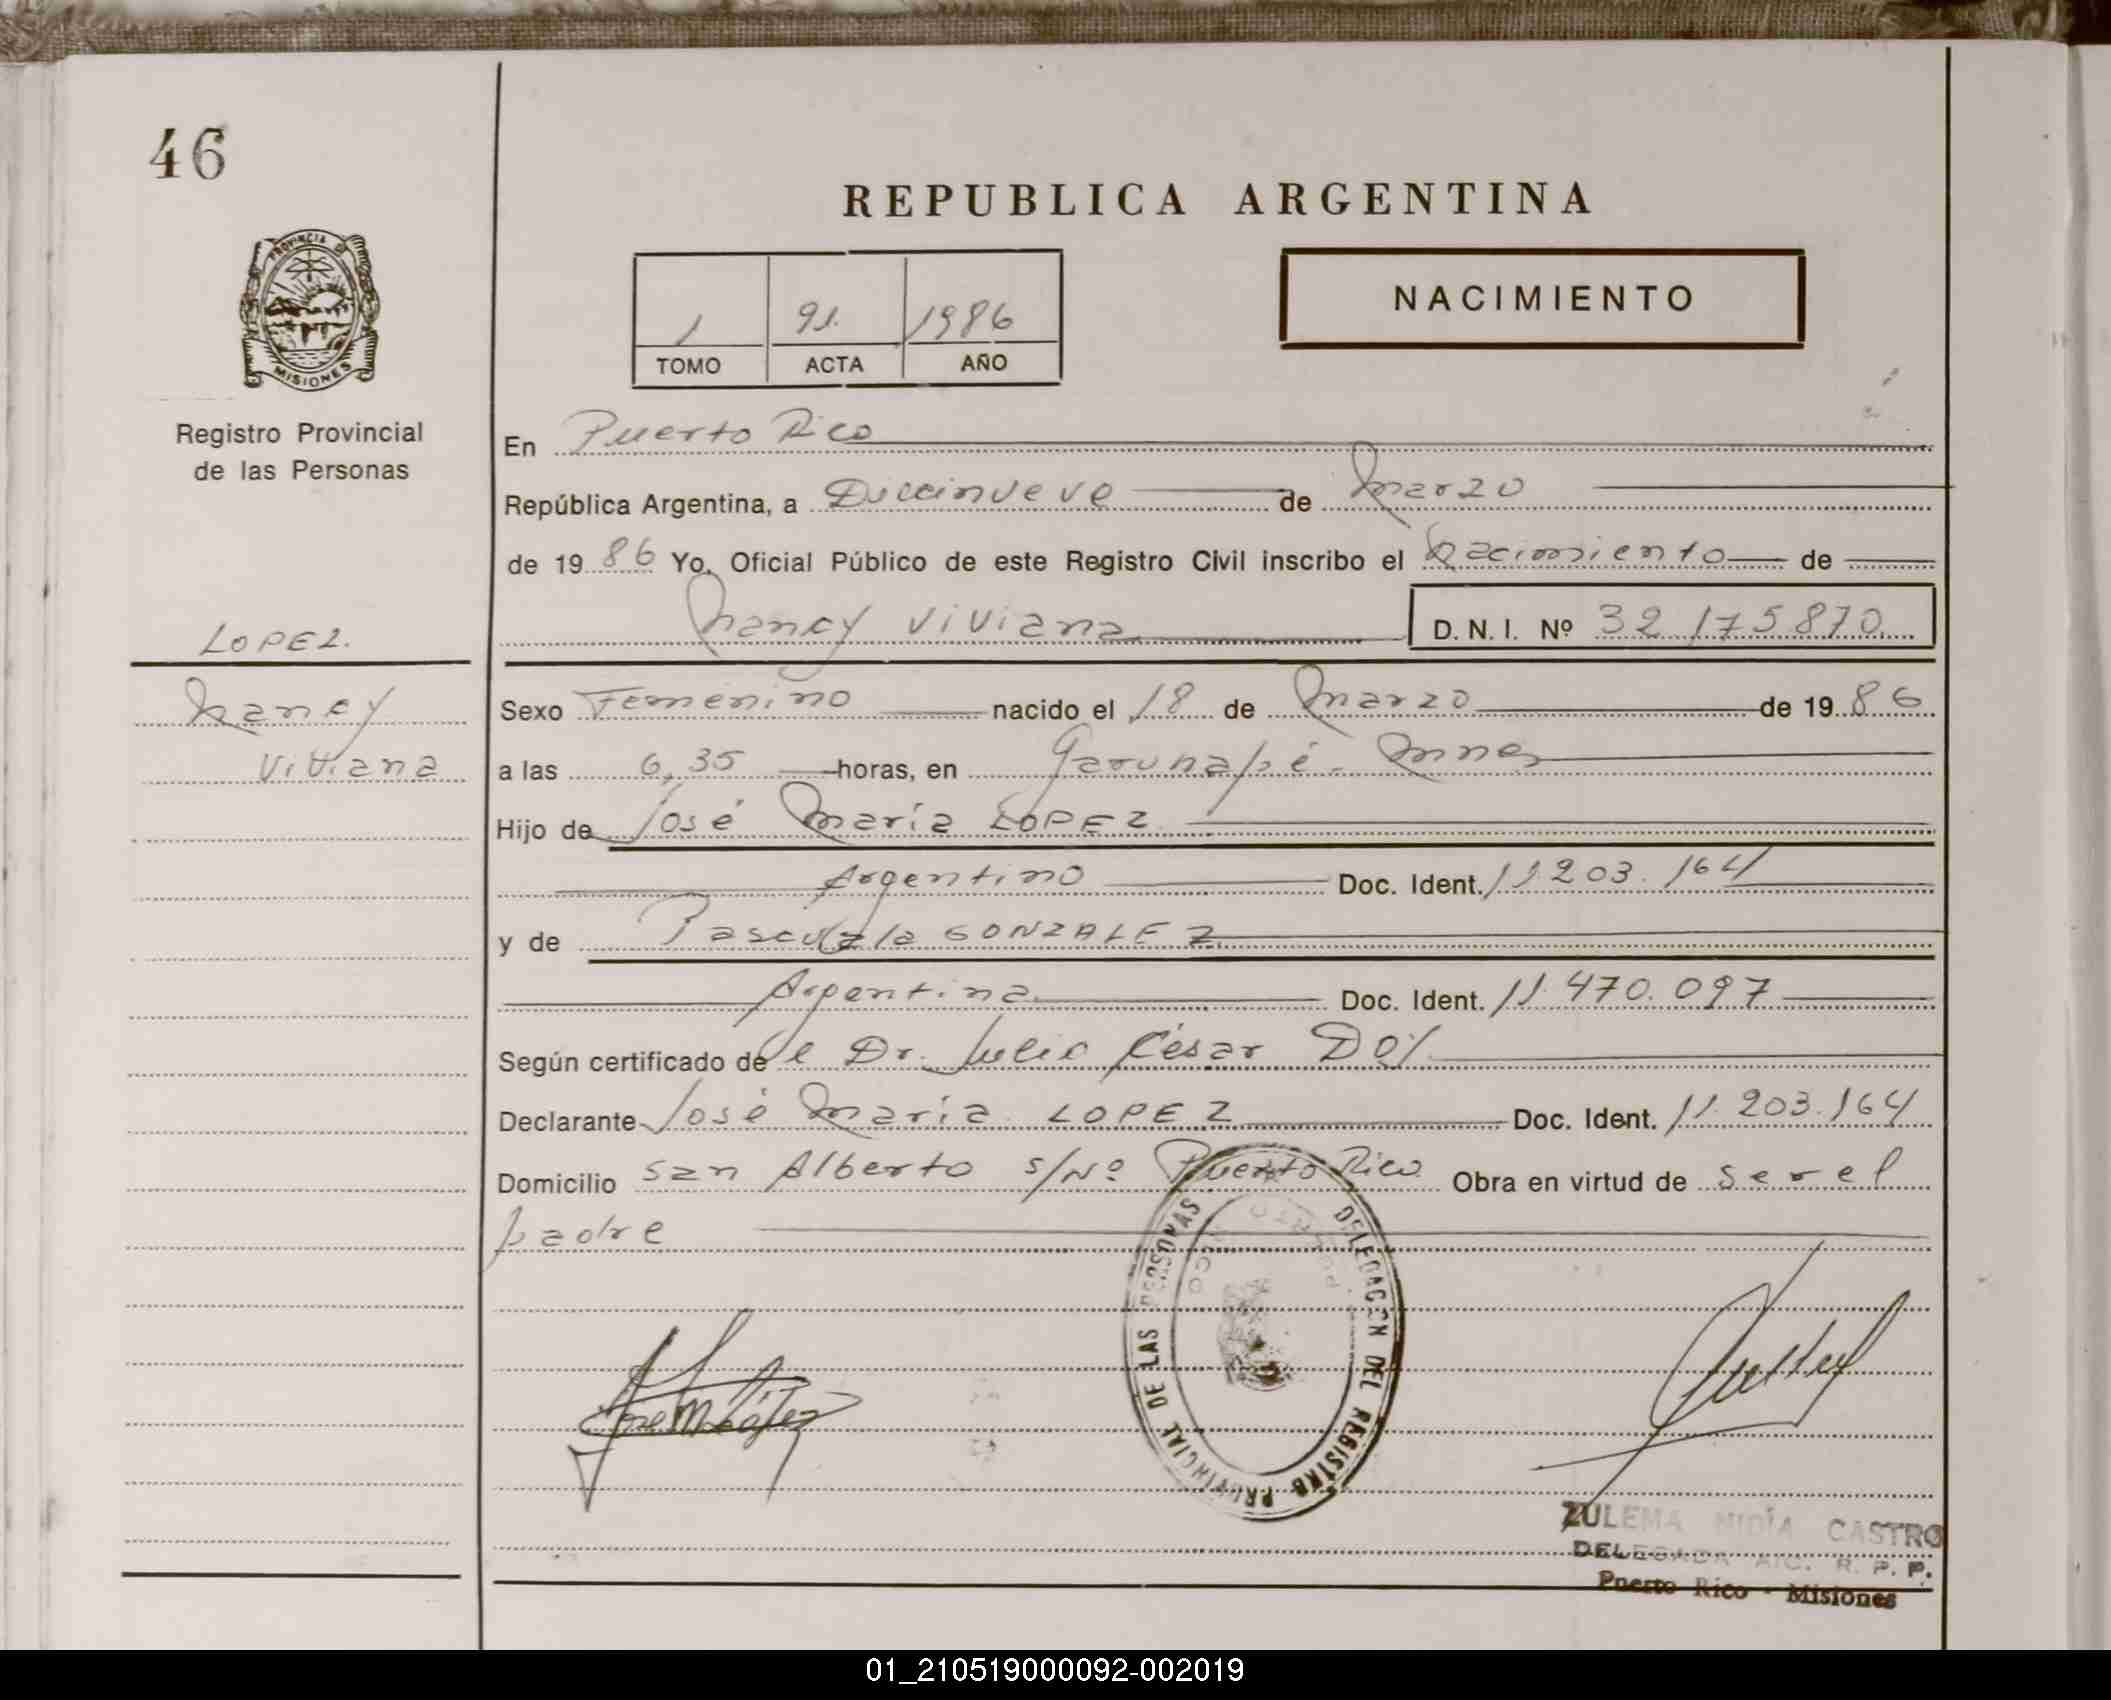 46
REPUBLICA ARGENTINA
PROVINCIA DE
MISIONES
Registro Provincial
de las Personas
1 91. 1986
TOMO ACTA AÑO
NACIMIENTO
En Puerto Rico
República Argentina, a Diecinueve de Marzo
de 1986 Yo, Oficial Público de este Registro Civil inscribo el Nacimiento de
Nancy Viviana D. N. I. Nº 32 175870
LOPEZ.
Nancy
Viviana
Sexo Femenino nacido el 18 de Marzo de 1986
a las 6,35 horas, en Garuhapé - Mnes
Hijo de José María LOPEZ
Argentino Doc. Ident. 11 203.164
y de Pascuala GONZALEZ
Argentina Doc. Ident. 11 470.097
Según certificado del Dr. Julio César DOY
Declarante José María LOPEZ Doc. Ident. 11.203.164
Domicilio San Alberto s/Nº Puerto Rico Obra en virtud de ser el
padre
DELEGACION DEL REGISTRO PROVINCIAL DE LAS PERSONAS
PUERTO RICO
José M López
ZULEMA NIDIA CASTRO
DELEGADA R. P. P.
Puerto Rico - Misiones
01_210519000092-002019